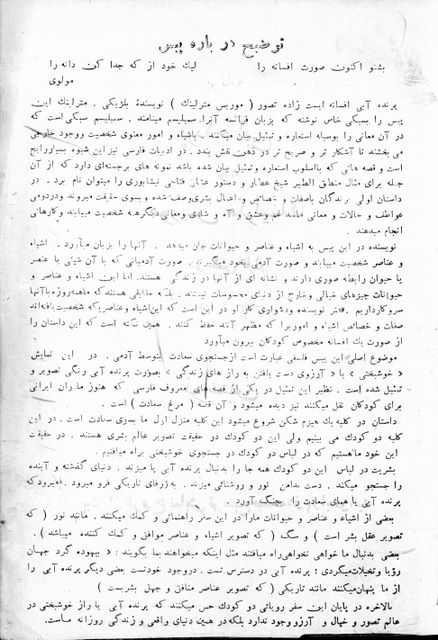 توضیح در باره پیس
بشنو اکنون صورت افسانه را لیك خود از که جدا کن دانه را
مولوی
پرنده آبی افسانه ایست زاده تصور ( موریس مترلینگ ) نویسندهٔ بلژیکی . مترلینگ این
پیس را بسبکی خاص نوشته که بزبان فرانسه آنرا سمبلیسم مینامند . سمبلیسم سبکی است که
در آن معانی را بوسیله استعاره و تمثیل بیان میکنند . باشیاء و امور معنوی شخصیت ووجود خارجی
می بخشند تا آشکار تر و صریح تر در ذهن نقش بندد . در ادبیات فارسی نیز این شیوه بسیاررایج
است و قصه هائی که بااسلوب استعاره و تمثیل بیان شده باشد نمونه های برجسته‌ای دارد که از آن
جمله برای مثال منطق الطیر شیخ عطار و دستور عشاق فتاحی نیشابوری را میتوان نام برد . در
داستان اولی پرندگان باصفات و خصائص و اعمال بشری‌وصف شده و بسوی حقیقت میروند ودردومی
عواطف و حالات و معانی مانند غم وعشق و آه و شادی ومعانی‌دیگرهمه شخصیت مییابند وکارهائی
انجام میدهند .
نویسنده در این پیس به اشیاء و عناصر و حیوانات جان میدهد . آنها را بزبان میآورد . اشیاء
و عناصر شخصیت مییابند و صورت آدمی بخود میگیرند . صورت آدمیانی که با آن شیئی یا عنصر
یا حیوان رابطه صوری دارند و نشانه ای از آنها در زندگی هستند. اما این اشیاء و عناصر و
حیوانات چیزهای خیالی و خارج از دنیای محسوسات نیستند . بلکه حقایقی هستندکه ماهمه‌روزه‌باآنها
سروکارداریم . هنر نویسنده ودشواری کار او در این است که این‌اشیاء وعناصریکه شخصیت‌یافته‌اند
صفات و خصائص اشیاء و اموریرا که مظهر آنند حفظ کنند . همین نکته است که این داستان را
از صورت یك افسانه مخصوص کودکان بیرون میآورد
موضوع اصلی این پیس فلسفی عبارت است ازجستجوی سعادت بتوسط آدمی . در این نمایش
« خوشبختی » یا « آرزوی دست یافتن به راز های زندگی » بصورت پرنده آبی رنگی تصویر و
تمثیل شده است . نظیر این تمثیل در یکی از قصه های معروف فارسی که هنوز ما‌ران ایرانی
برای کودکان نقل میکنند نیز دیده میشود و آن قصه ( مرغ سعادت ) است .
داستان در کلبه یك هیزم شکن شروع میشود این کلبه منزل اول ما بسوی سعادت است . در این
کلبه دو کودك می بینیم ولی این دو کودك در حقیقت تصویر عالم بشری هستند . در حقیقت
این خود ماهستیم که در لباس دو کودك در جستجوی خوشبختی براه میافتیم .
بشریت در لباس این دو کودك همه جا را بدنبال پرنده آبی پا میزند . دنیای گذشته و آینده
را جستجو میکند . دست بدامن نور و روشنائی میزند . به‌ژرفای تاریکی فرو میرود .
پرنده آبی یا همای سعادت را بچنگ آورد .
بعضی از اشیاء و عناصر و حیوانات مارا در این سفر راهنمائی و کمك میکنند . مانند نور ( که
تصویر عقل بشر است ) و سگ ( که تصویر اشیاء و عناصر موافق و کمك کننده میباشد ) .
بعضی بدنبال ما خواهی نخواهی‌راه میافتند مثل اینکه میخواهند بما بگویند : « بیهوده گرد جهان
رؤیا وتخیلات‌میگردی ؛ پرنده آبی در دسترس تست. دروجود خودتست بعضی دیگر پرنده آبی را
از ما پنهان‌میکنند مانند تاریکی ( که تصویر عناصر منافق و جهل بشریست )
بالاخره در پایان این سفر رویائی دو کودك حس میکنند که پرنده آبی یا راز خوشبختی در
عالم تصور و خیال و آرزووجود ندارد بلکه‌در همین دنیای واقعی و زندگی روزانه ماست.